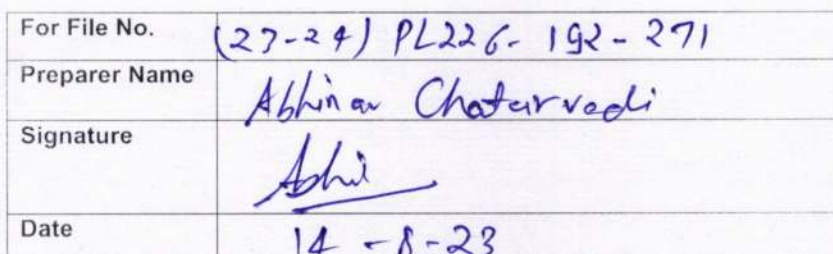 For File No. (23-24) PL226-192-271
Preparer Name Abhinav Chaturvedi
Signature Abhi
Date 14-8-23